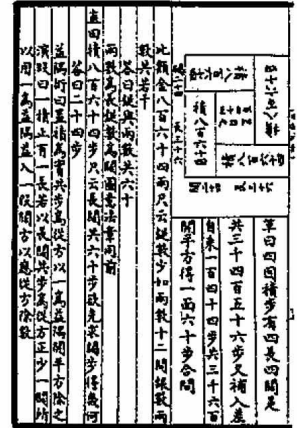 草曰四因積步有四長四闊是
共三千四百五十六步又補入差
自乘一百四十四步共三千六百
開平方得一面六十步合問
積八百六十四
長三十六
此類金八百六十四兩只云錠數少如兩數十二問錠數兩
數共若干
答曰錠與兩數共六十
兩數為長錠數為闊圖意法草同前
直田積八百六十四步只云長闊共六十步欲先求闊步得幾何
答曰二十四步
益隅術曰置積為實共步為從方以一為益隅開平方除之
演段曰一積止有一長若以長闊共步為從方正少一闊所
以用一為益隅益入一段闊方以應從方除數